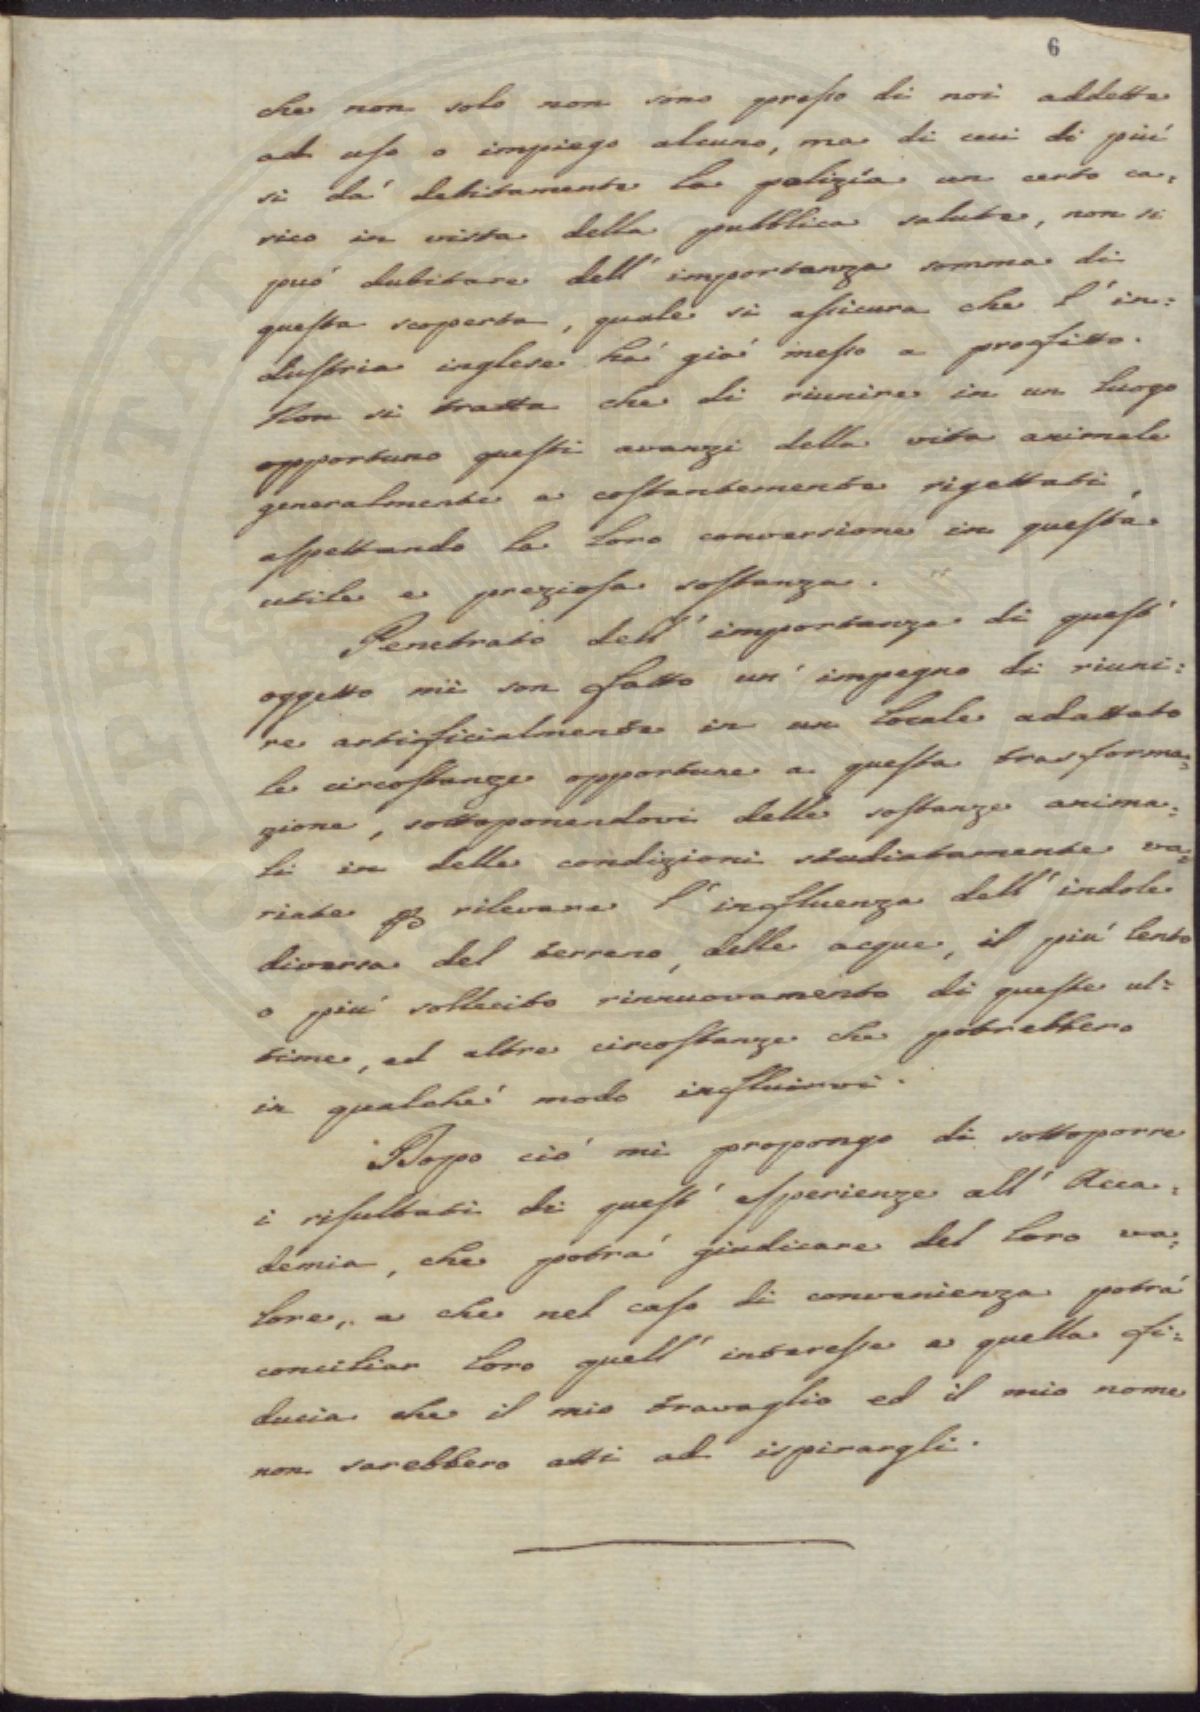 6
che non solo non sono presso di noi addette
ad uso o impiego alcuno, ma di cui di piú
si dá debitamente la polizía un certo ca=
rico in vista della pubblica salute, non si
puó dubitare dell'importanza somma di
questa scoperta, quale si assicura che l'in=
dustria inglese há giá messo a profitto.
Non si tratta che di riunire in un luogo
opportuno questi avanzi della vita animale
generalmente e costantemente rigettati,
aspettando la loro conversione in questa
utile e preziosa sostanza.
Penetrato dell'importanza di quest'
oggetto mi son fatto un'impegno di riuni=
re artificialmente in un locale adattato
le circostanze opportune a questa trasforma=
zione, sottoponendovi delle sostanze anima=
li in delle condizioni studiatamente va=
riate p rilevare l'influenza dell'indole
diversa del terreno, delle acque, il piú lento
o piú sollecito rinnuovamento di queste ul=
time, ed altre circostanze che potrebbero
in qualché modo influirvi.
Dopo ció mi propongo di sottoporre
i risultati di quest'esperienze all'Acca=
demia, che potrá giudicare del loro va=
lore, e che nel caso di convenienza potrá
conciliar loro quell'interesse e quella fi=
ducia che il mio travaglio ed il mio nome
non sarebbero atti ad ispirargli.